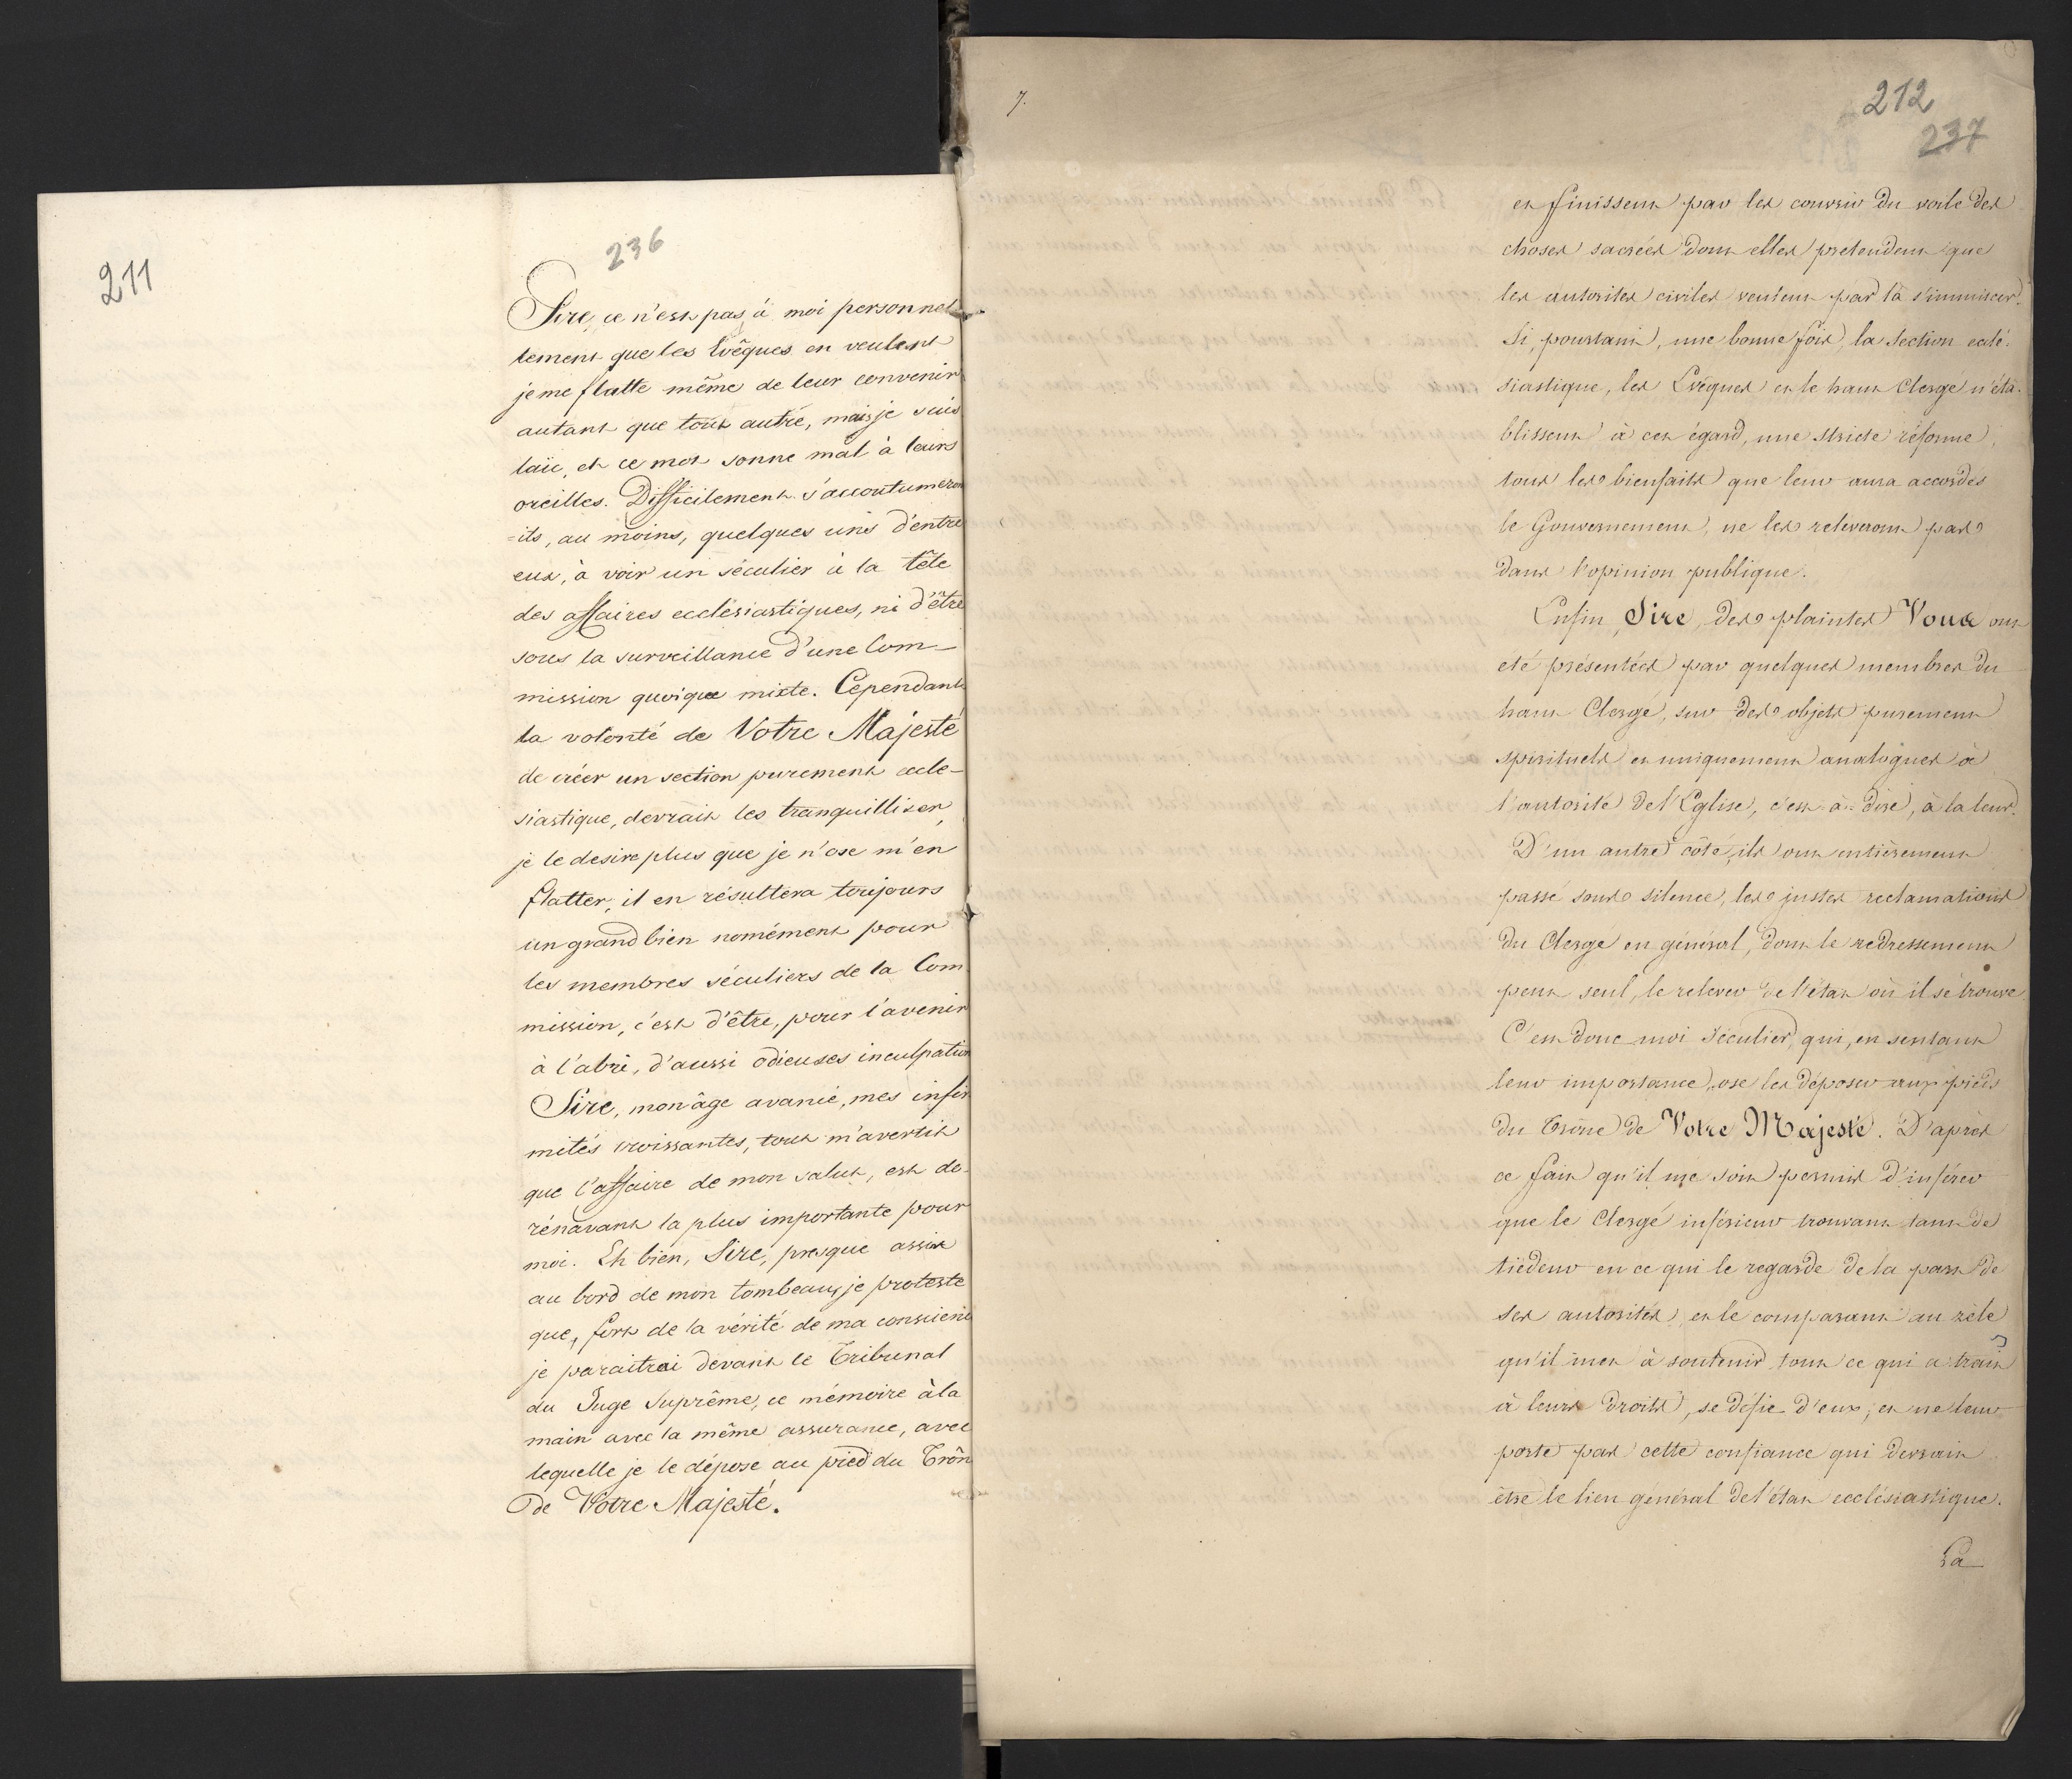 211
236
Sire, ce n'est pas à moi personnel
lement que les Evêques en veulent
je me flatte même de leur convenir
autant que tout autre, mais je suis
laïc, et ce mot sonne mal à leurs
oreilles. Difficilement s'accoutumeron
=ils, au moins, quelques uns d'entre
eux, à voir un séculier à la tête
des affaires ecclésiastiques, ni d'être
sous la surveillance d'une Com-
mission quoique mixte. Cependant
la volonté de Votre Majesté
de créer un section purement eccle-
siastique, devrait les tranquilliser,
je le desire plus que je n'ose m'en
flatter, il en résultera toujours
un grand bien nomément pour
les membres séculiers de la Com
mission, c'est d'être, pour l'avenir
à l'abri, d'aussi odieuses inculpation
Sire, mon âge avancé, mes infir
mités croissantes, tout m'avertit
que l'affaire de mon salut, est do-
rénavant la plus importante pour
moi. Eh bien, Sire, presque assis
au bord de mon tombeau, je proteste
que, fort de la vérité de ma conscience
je paraitrai devant le Tribunal
du Juge Suprême, ce mémoire à la
main avec la même assurance, avec
lequelle je le dépose au pied du Trôn
de Votre Majesté.
7.
212
237
et finissent par les couvrir du voile des
choses sacrées dont elles pretendent que
les autorites civiles veulent par là s'immiscer.
Si, pourtant, une bonne fois, la Section eccle-
siastique, les Evêques et le haut Clergé n'éta-
blissent à cet égard, une stricte réforme,
tous les bienfaits que leur aura accordés
le Gouvernement, ne les releveront pas
dans l'opinion publique.
Enfin, Sire, des plaintes Vous ont
eté présentées par quelques membres du
haut Clergé, sur des objets purement
spirituels et uniquement analogues à
l'autorité de l'Eglise, c'est-à-dire, à la leur.
D'un autre côté, ils ont entièrement
passé sous silence, les justes reclamations
du Clergé en général, dont le redressement
peut seul, le relever de l'état où il se trouve
C'est donc moi séculier, qui, en sentant
leur importance, ose les déposer aux pieds
du Trône de Votre Majesté. D'après
ce fait qu'il me soit permis d'inférer
que le Clergé inférieur trouvant tant de
tiédeur en ce qui le regarde de la part de
ses autorités, et le comparant au zèle
qu'il met à soutenir tout ce qui a trait
à leurs droits, se défie d'eux, et ne leur
porte pas cette confiance qui devrait
être le lien général de l'état ecclésiastique.
La